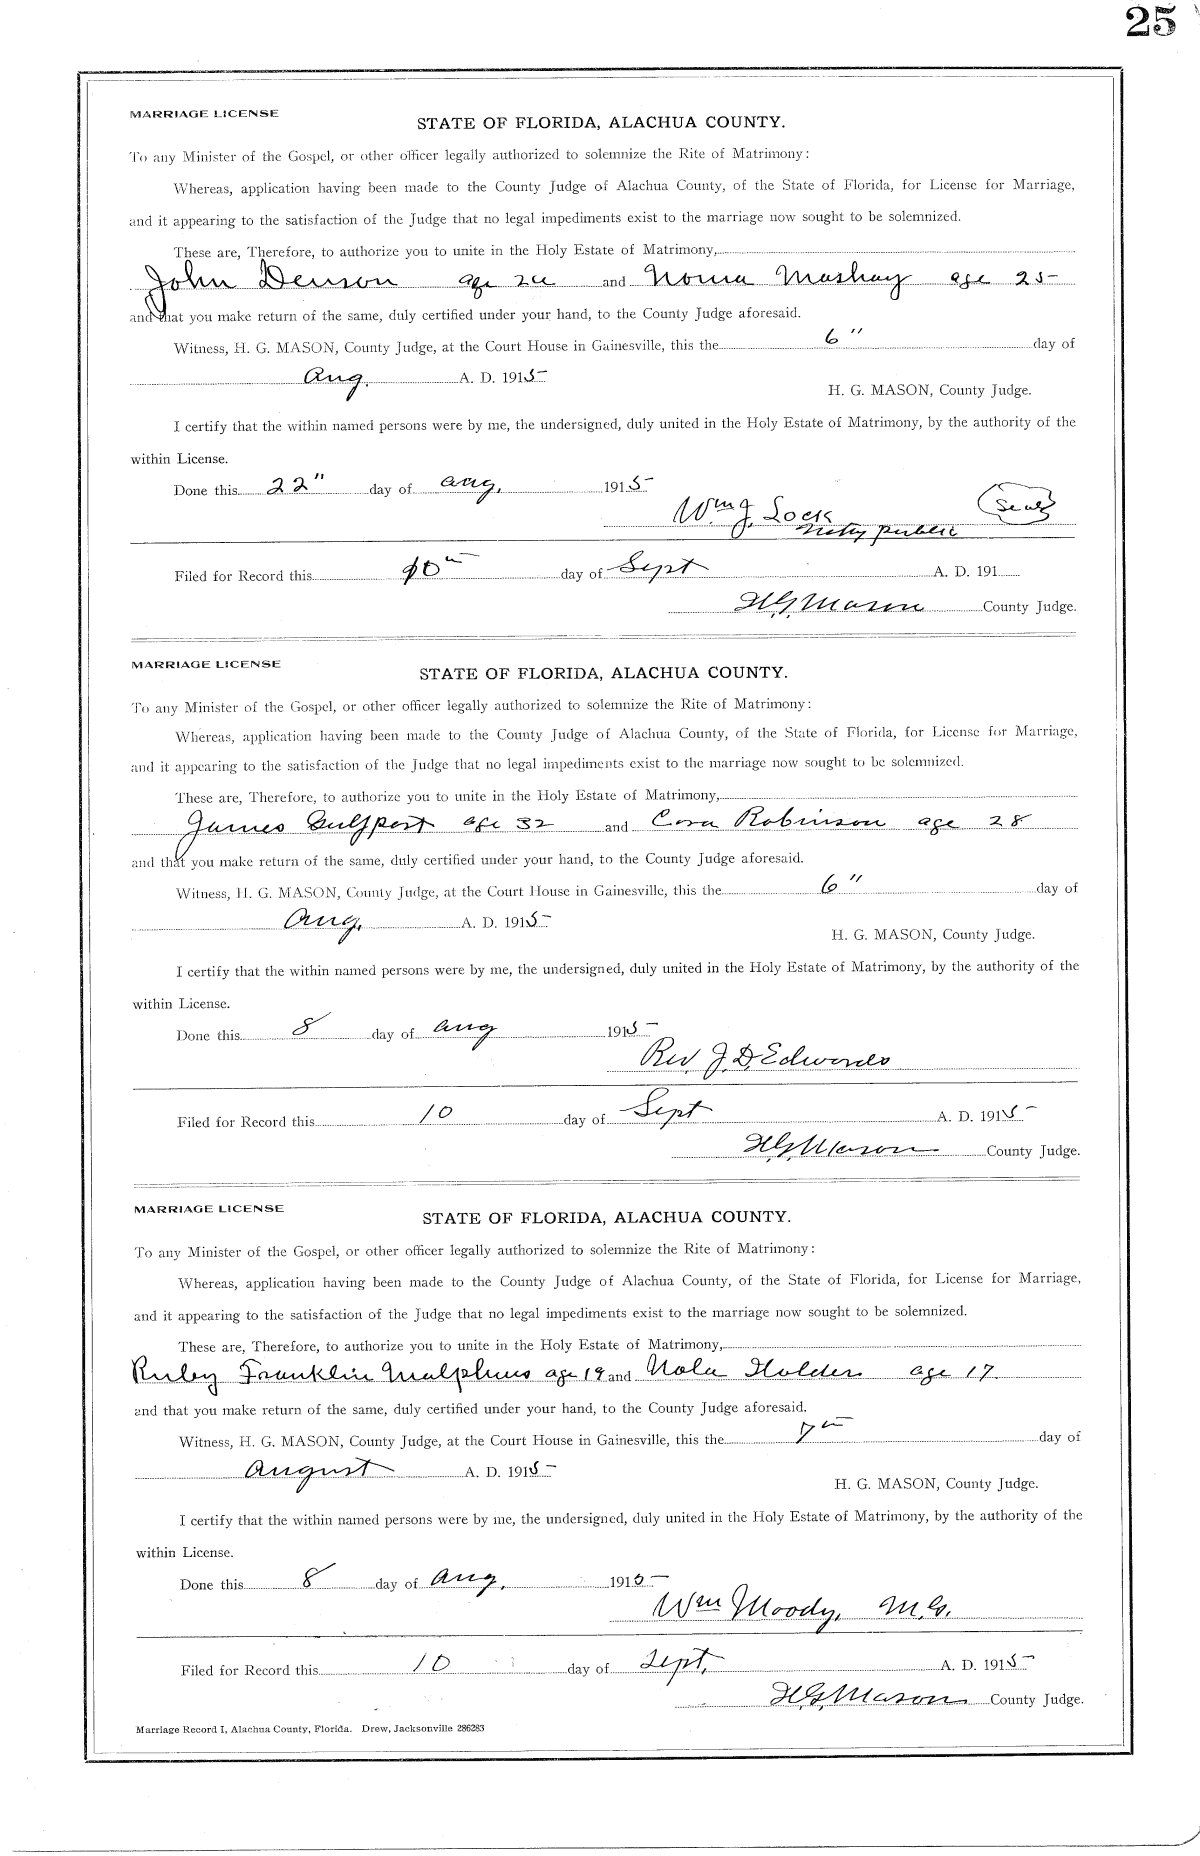 25
MARRIAGE LICENSE
STATE OF FLORIDA, ALACHUA COUNTY.
To any Minister of the Gospel, or other officer legally authorized to solemnize the Rite of Matrimony:
Whereas, application having been made to the County Judge of Alachua County, of the State of Florida, for License for Marriage,
and it appearing to the satisfaction of the Judge that no legal impediments exist to the marriage now sought to be solemnized.
These are, Therefore, to authorize you to unite in the Holy Estate of Matrimony,
John Denson age and Mashay age 25
and that you make return of the same, duly certified under your hand, to the County Judge aforesaid.
Witness, H. G. MASON, County Judge, at the Court House in Gainesville, this the 6" day of
Aug. A. D. 1915
H. G. MASON, County Judge.
I certify that the within named persons were by me, the undersigned, duly united in the Holy Estate of Matrimony, by the authority of the
within License.
Done this 22" day of Aug, 1915
Wm J. Lock (Seal)
Notry public
Filed for Record this 10th day of Sept A. D. 191
H.G. Mason County Judge.
MARRIAGE LICENSE
STATE OF FLORIDA, ALACHUA COUNTY.
To any Minister of the Gospel, or other officer legally authorized to solemnize the Rite of Matrimony:
Whereas, application having been made to the County Judge of Alachua County, of the State of Florida, for License for Marriage,
and it appearing to the satisfaction of the Judge that no legal impediments exist to the marriage now sought to be solemnized.
These are, Therefore, to authorize you to unite in the Holy Estate of Matrimony,
James Gulfport age 32 and Cora Robinson age 28
and that you make return of the same, duly certified under your hand, to the County Judge aforesaid.
Witness, H. G. MASON, County Judge, at the Court House in Gainesville, this the 6" day of
Aug. A. D. 1915
H. G. MASON, County Judge.
I certify that the within named persons were by me, the undersigned, duly united in the Holy Estate of Matrimony, by the authority of the
within License.
Done this 8 day of Aug 1915
Rev. J. D. Edwards
Filed for Record this 10 day of Sept A. D. 1915
H.G. Mason County Judge.
MARRIAGE LICENSE
STATE OF FLORIDA, ALACHUA COUNTY.
To any Minister of the Gospel, or other officer legally authorized to solemnize the Rite of Matrimony:
Whereas, application having been made to the County Judge of Alachua County, of the State of Florida, for License for Marriage,
and it appearing to the satisfaction of the Judge that no legal impediments exist to the marriage now sought to be solemnized.
These are, Therefore, to authorize you to unite in the Holy Estate of Matrimony,
Ruby Franklin Malphurs age 19 and Nola Holder age 17
and that you make return of the same, duly certified under your hand, to the County Judge aforesaid.
Witness, H. G. MASON, County Judge, at the Court House in Gainesville, this the 7th day of
August A. D. 1915
H. G. MASON, County Judge.
I certify that the within named persons were by me, the undersigned, duly united in the Holy Estate of Matrimony, by the authority of the
within License.
Done this 8 day of Aug, 1915
Wm Moody, M.G.
Filed for Record this 10 day of Sept, A. D. 1915
H.G. Mason County Judge.
Marriage Record I, Alachua County, Florida. Drew, Jacksonville 286283